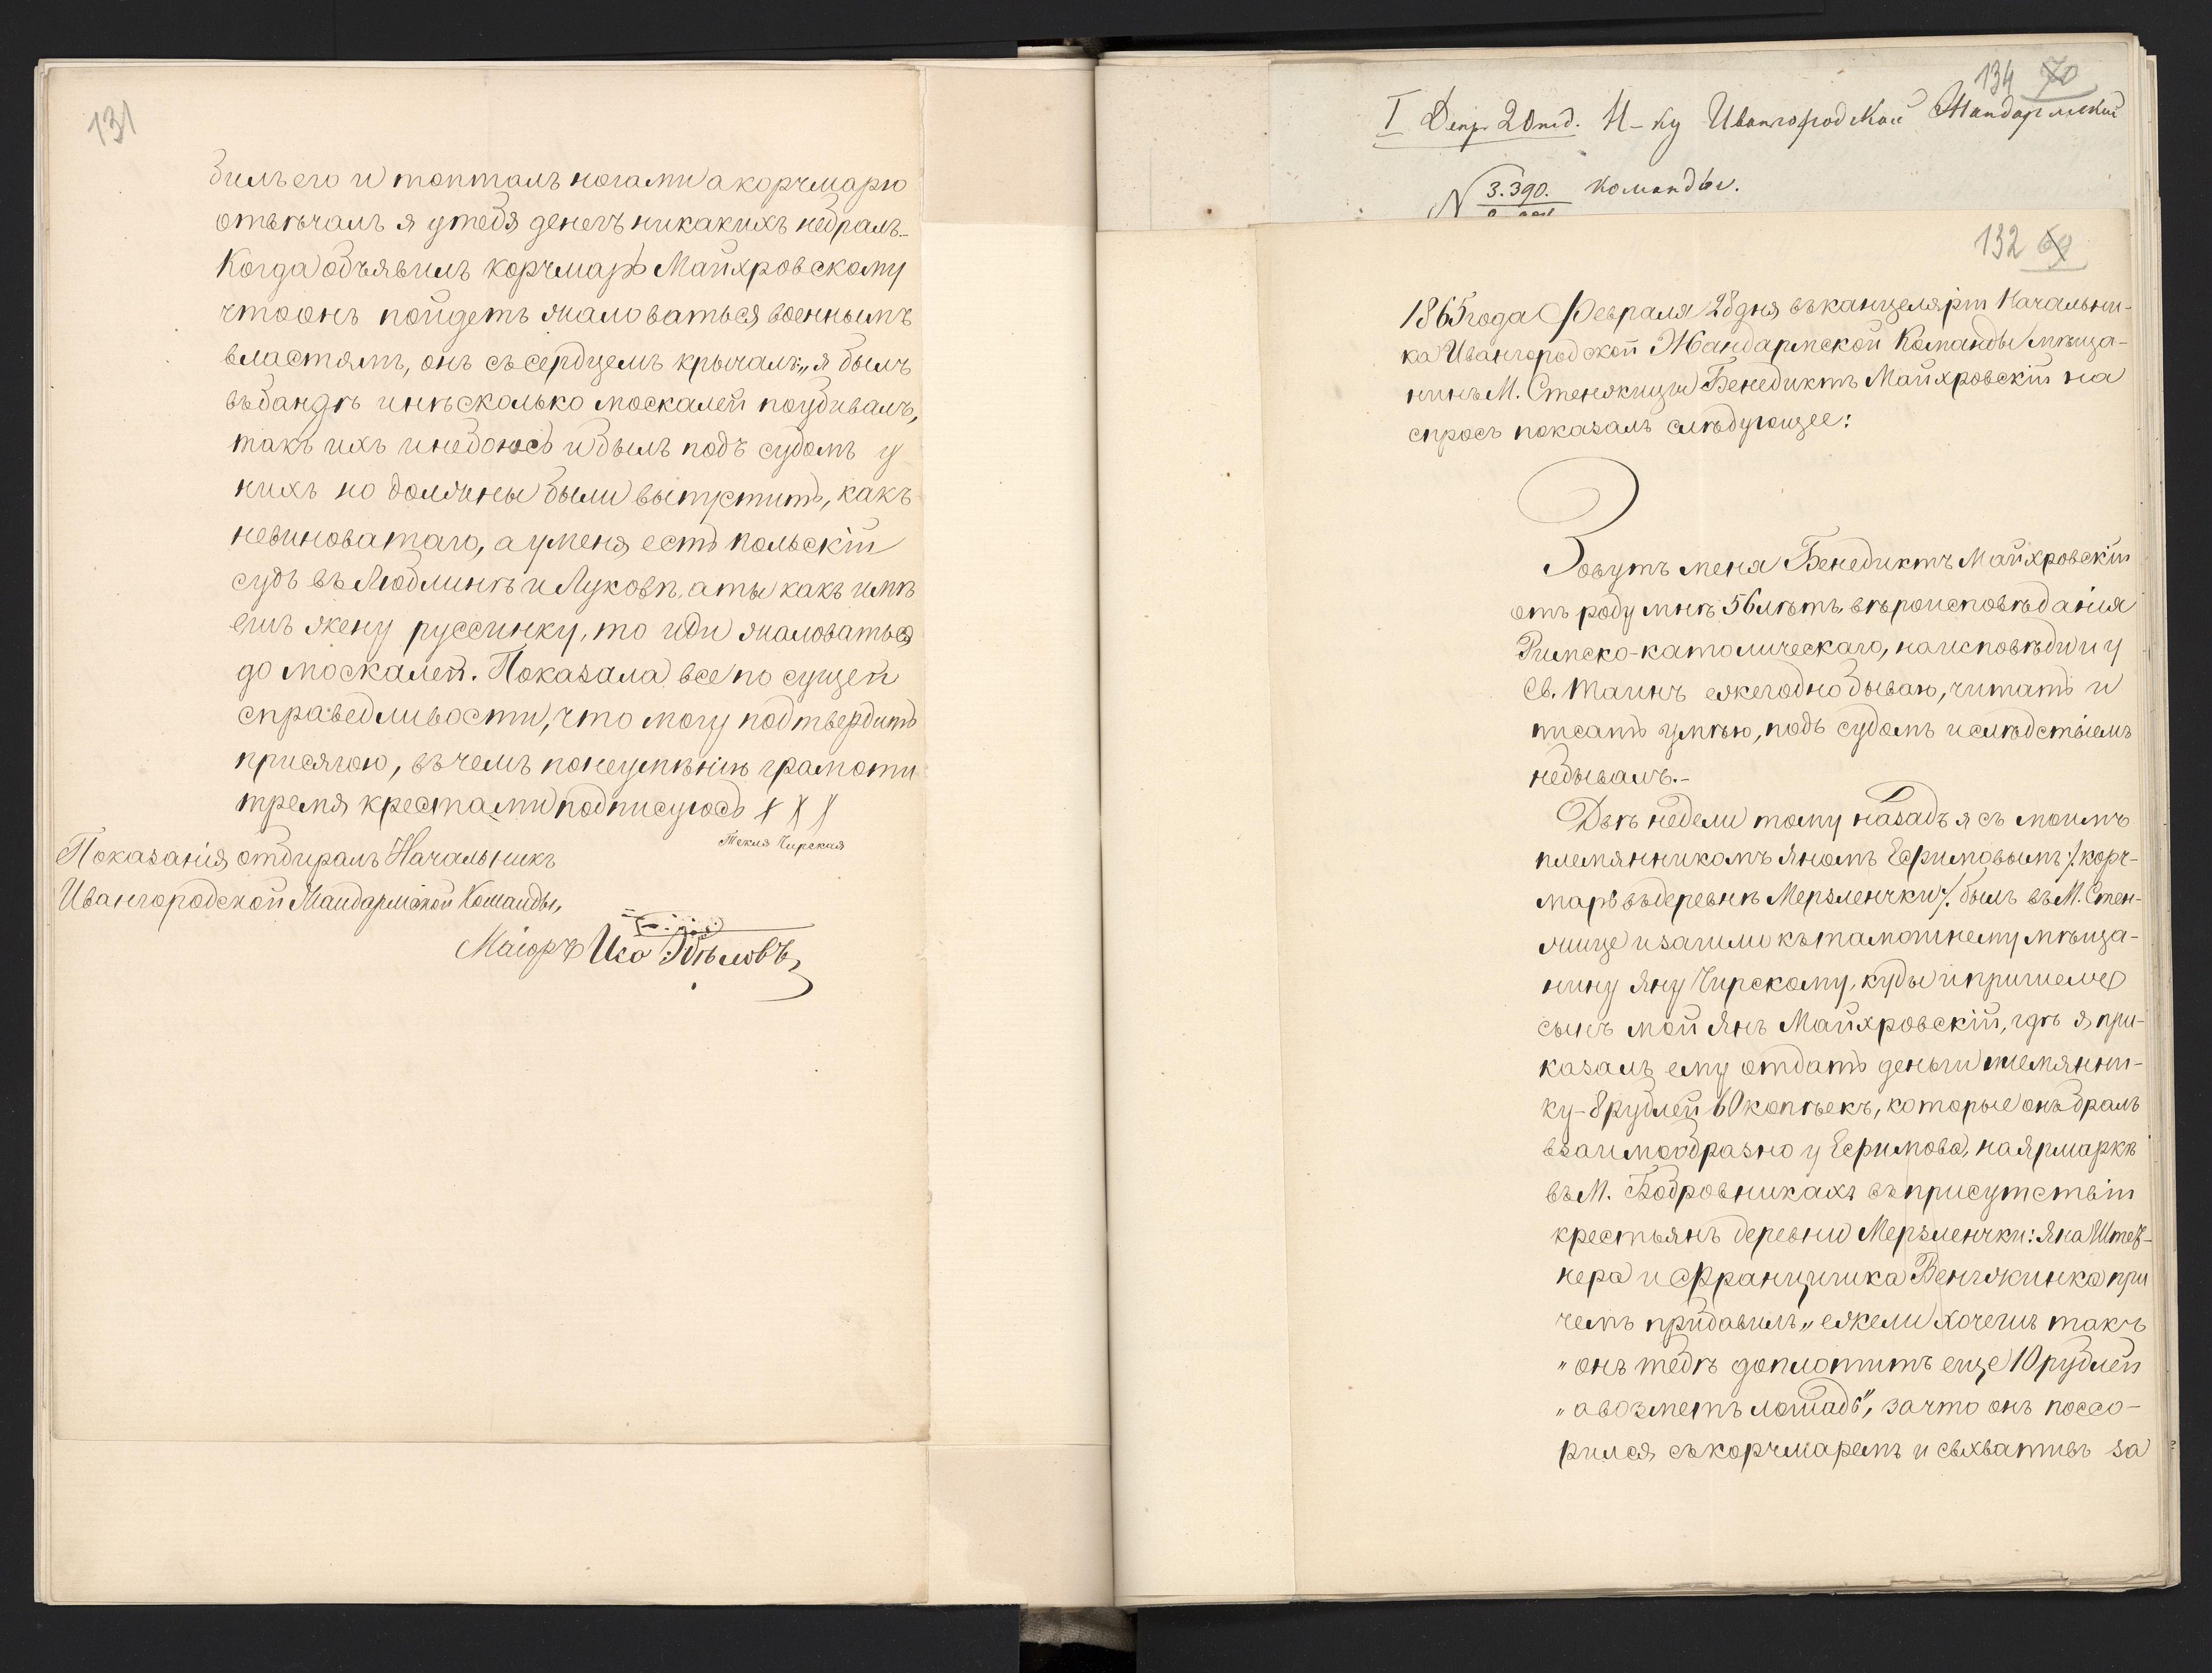 131
билъ его и топталъ ногами а корчмарю
отвѣчалъ я у тебя денегъ никакихъ небралъ.
Когда объявилъ корчмарь Майхровскому
что онъ пойдетъ жаловаться военнымъ
властямъ, онъ съ сердцемъ крычалъ: „я былъ
въ бандѣ и нѣсколько москалей поубивалъ,
такъ ихъ и небоюсь и былъ подъ судомъ у
нихъ но должны были выпустить, какъ
невиноватаго, а уменя есть польскій
судъ въ Люблинѣ и Луковѣ, а ты какъ имѣ
ешъ жену руссинку, то иди жаловаться
до москалей. Показала все по сущей
справедливости, что могу подтвердить
присягою, въ чемъ по неумѣнію грамоти
тремя крестами подписуюсь XXX
Текля Чирская
Показанія отбиралъ Начальникъ
Ивангородской Жандармской Команды,
Маіоръ
134 70
I Депр 2 Отд. Н-ку Ивангородской Жандармской
N 3.390. команды.
132 69
1865 года Февраля 28 дня въ канцеляріи Начальни-
ка Ивангородской Жандармской Команды мѣща-
нинъ М. Стенжицы Бенедиктъ Майхровскій на
спросъ показалъ слѣдующее:
Зовутъ меня Бенедиктъ Майхровскій
отъ роду мнѣ 56 лѣтъ, вѣроисповѣданія
Римско-католическаго, на исповѣди и у
Св. таинъ ежегодно бываю, читать и
писать умѣю, подъ судомъ и слѣдствіемъ
небывалъ.-
Двѣ недели тому назадъ я съ моимъ
племянникомъ Яномъ Ефимовымъ /: корч-
марь въ деревнѣ Мерзленчки :/ былъ въ М. Стен-
жице и зашли къ тамошнему мѣща-
нину Яну Чирскому, куды и пришелъ
сынъ мой Янъ Майхровскій, гдѣ я при-
казалъ ему отдать деньги племянни-
ку - 8 рублей 60 копѣекъ, которые онъ бралъ
взаимообразно у Ефимова, на ярмаркѣ
въ М. Бобровникахъ въ присутствіи
крестьянъ деревни Мерзленчки: Яна Штеб-
нера и Францишка Венгжинка при
чемъ прибавилъ „ежели хочешъ такъ
„онъ тебѣ доплотитъ еще 10 рублей
„а возметъ лошадь", за что онъ поссо-
рился съ корчмаремъ и схвативъ за